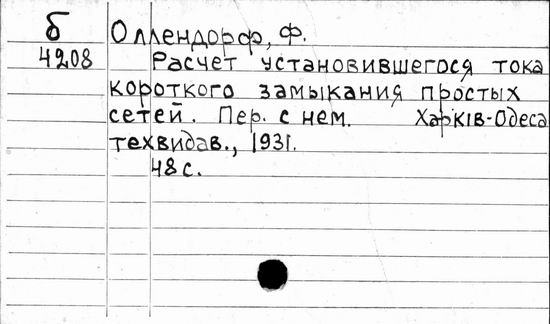 б
4208
Оллендорф, Ф.
Расчет установившегося тока
короткого замыкания простых
сетей. Пер. с нем. Харків-Одеса
техвидав., 1931.
48 с.